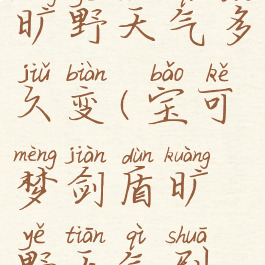 旷野天气多
jiǔ biàn bǎo kě
久变(宝可
mèng jiàn dùn kuàng
梦剑盾旷
yě tiān qì shuā
野天气刷